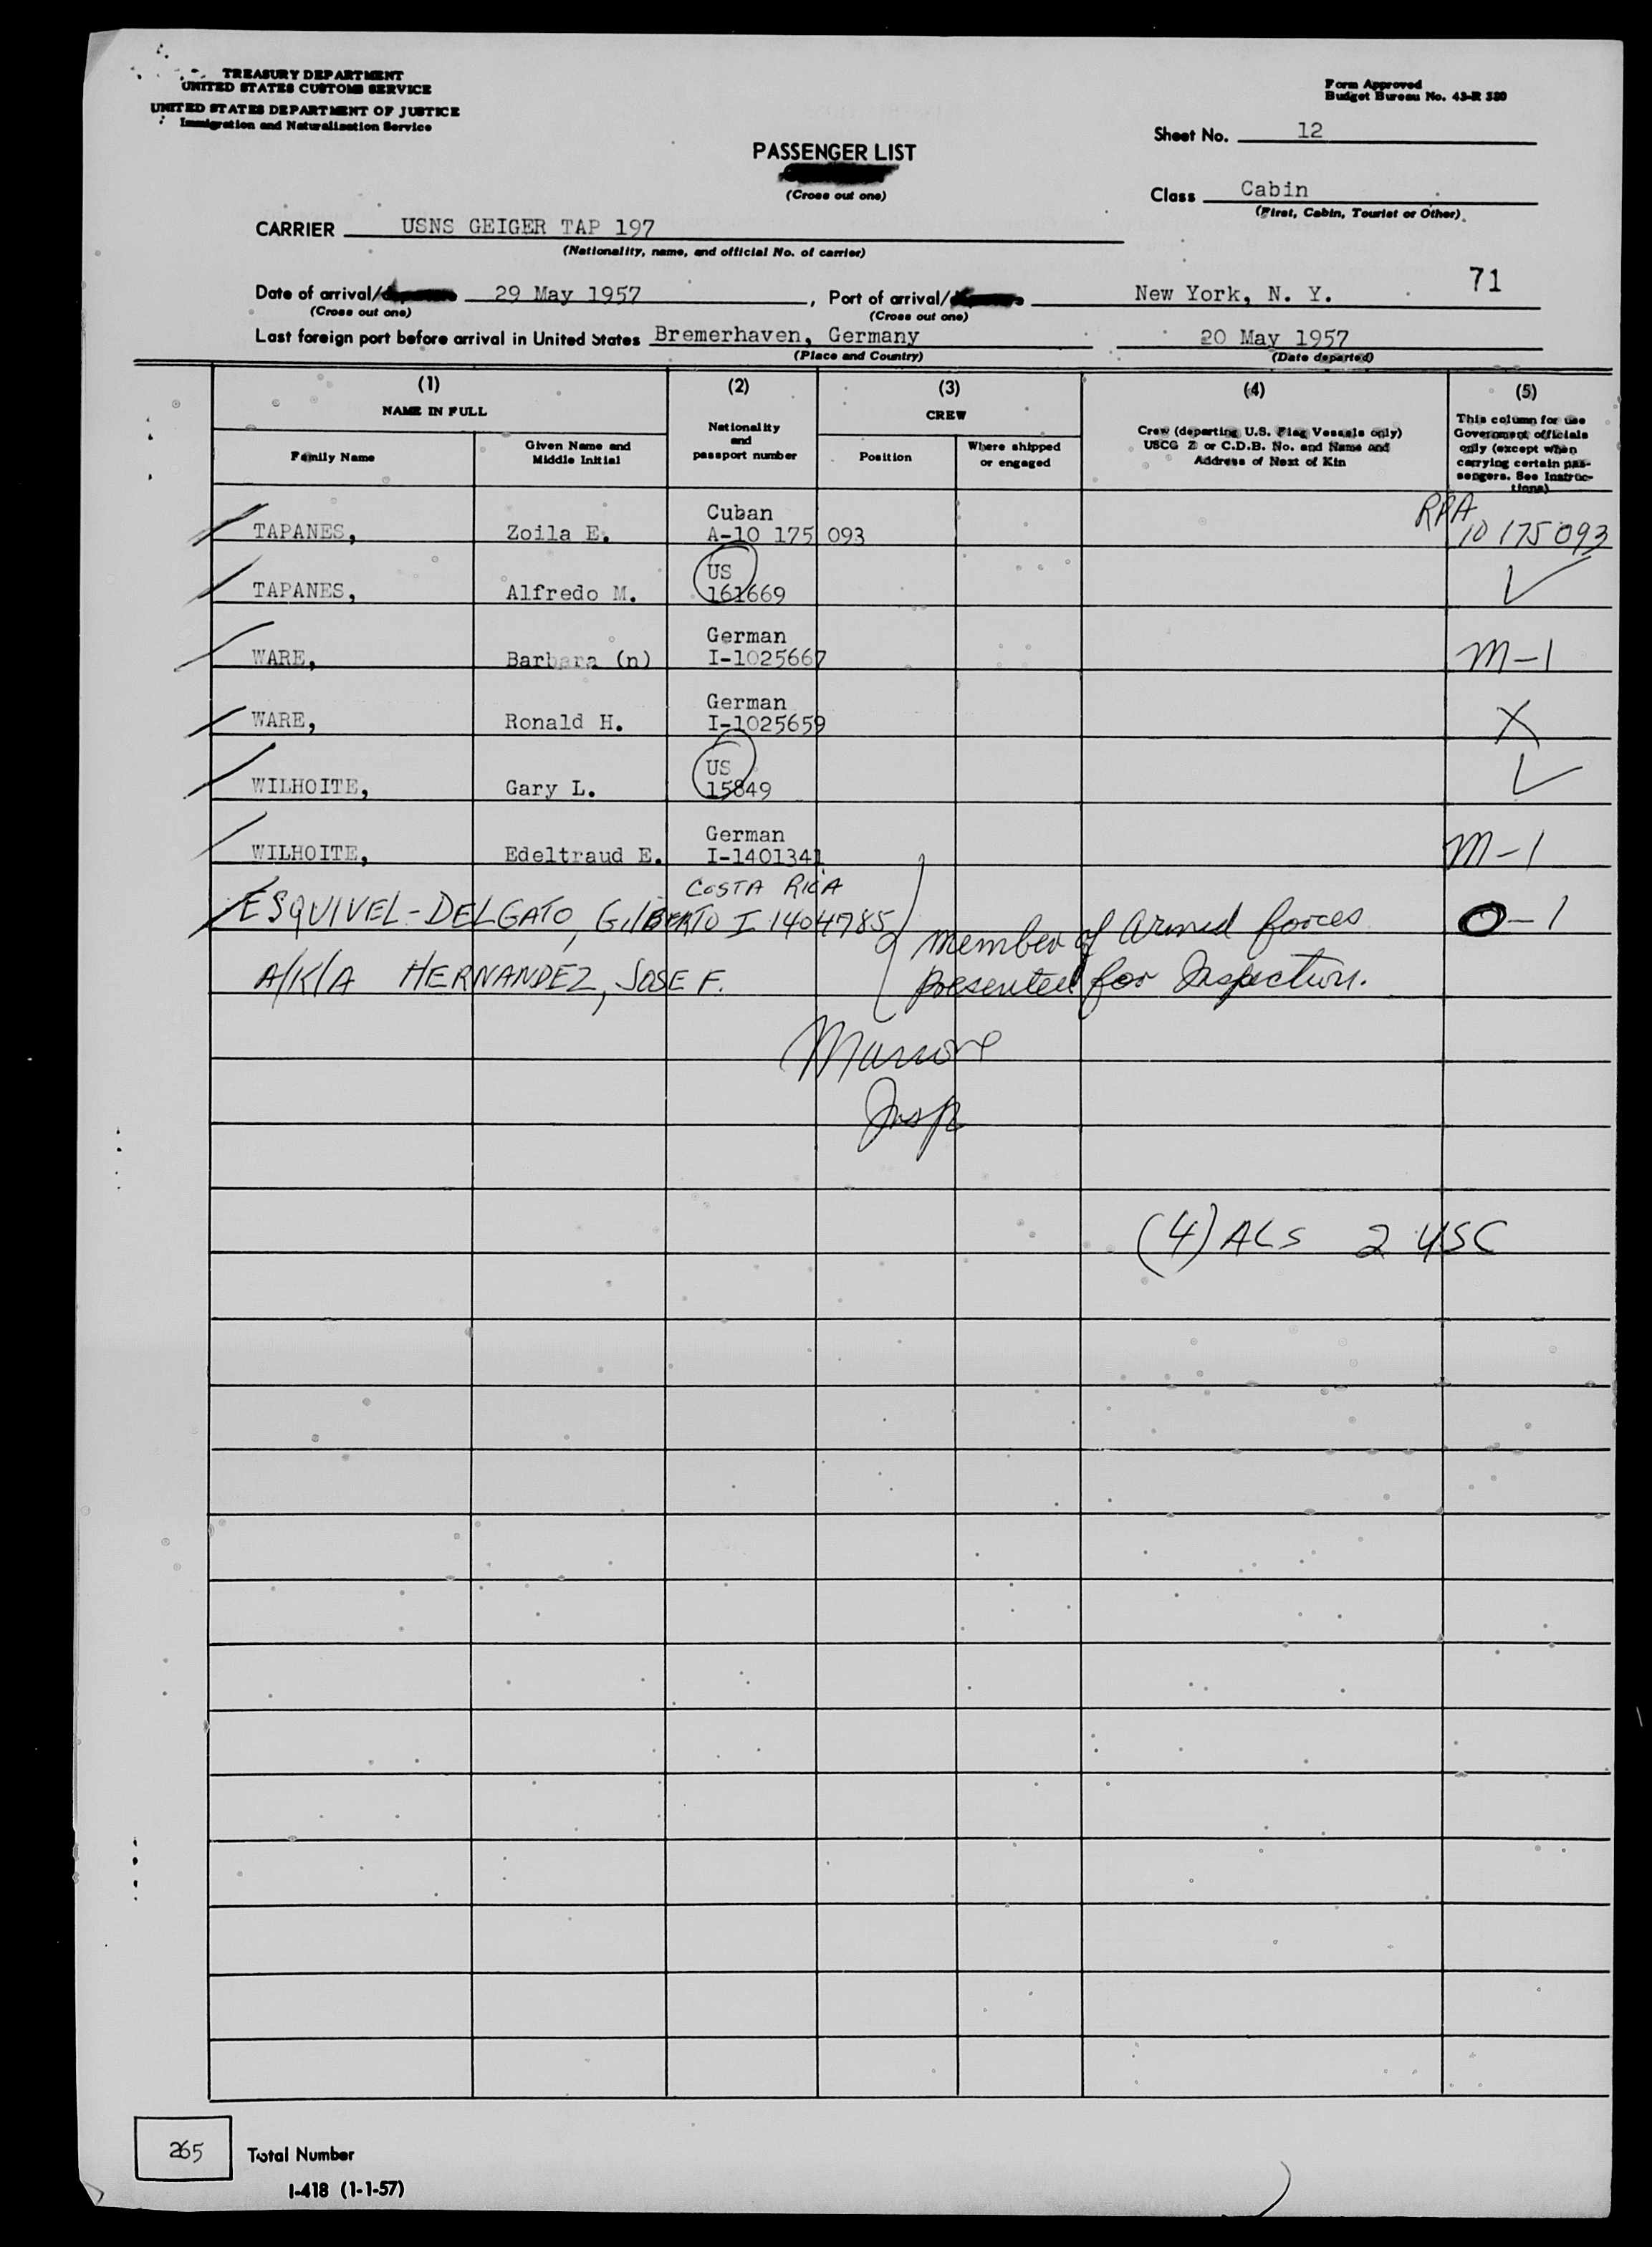 TREASURY DEPARTMENT
UNITED STATES CUSTOMS SERVICE
UNITED STATES DEPARTMENT OF JUSTICE
Immigration and Naturalization Service
Form Approved
Budget Bureau No. 43-R 380
Sheet No. 12
PASSENGER LIST
(Cross out one)
Class Cabin
(First, Cabin, Tourist or Other)
CARRIER USNS GEIGER TAP 197
(Nationality, name, and official No. of carrier)
71
Date of arrival/ 29 May 1957, Port of arrival/ New York, N. Y.
(Cross out one) (Cross out one)
Last foreign port before arrival in United States Bremerhaven, Germany 20 May 1957
(Place and Country) (Date departed)
(1) (2) (3) (4) (5)
NAME IN FULL
Family Name
Given Name and
Middle Initial
Nationality
and
passport number
CREW
Position
Where shipped
or engaged
Crew (departing U.S. Flag Vessels only)
USCG Z or C.D.B. No. and Name and
Address of Next of Kin
This column for use
Government officials
only (except when
carrying certain pas-
sengers. See Instruc-
tions)
Cuban RPA
TAPANES, Zoila E. A-10 175 093 10 175 093
US
TAPANES, Alfredo M. 161669 ✓
German
WARE, Barbara (n) I-1025667 M-1
German
WARE, Ronald H. I-1025659 X
US
WILHOITE, Gary L. 15849 ✓
German
WILHOITE, Edeltraud E. I-1401341 M-1
COSTA RICA
ESQUIVEL-DELGATO, GILBERTO I 1404785 member of Armed forces O-1
A/K/A HERNANDEZ, JOSE F. presented for Inspection.
Insp
(4) ALS 2 USC
265 Total Number
I-418 (1-1-57)